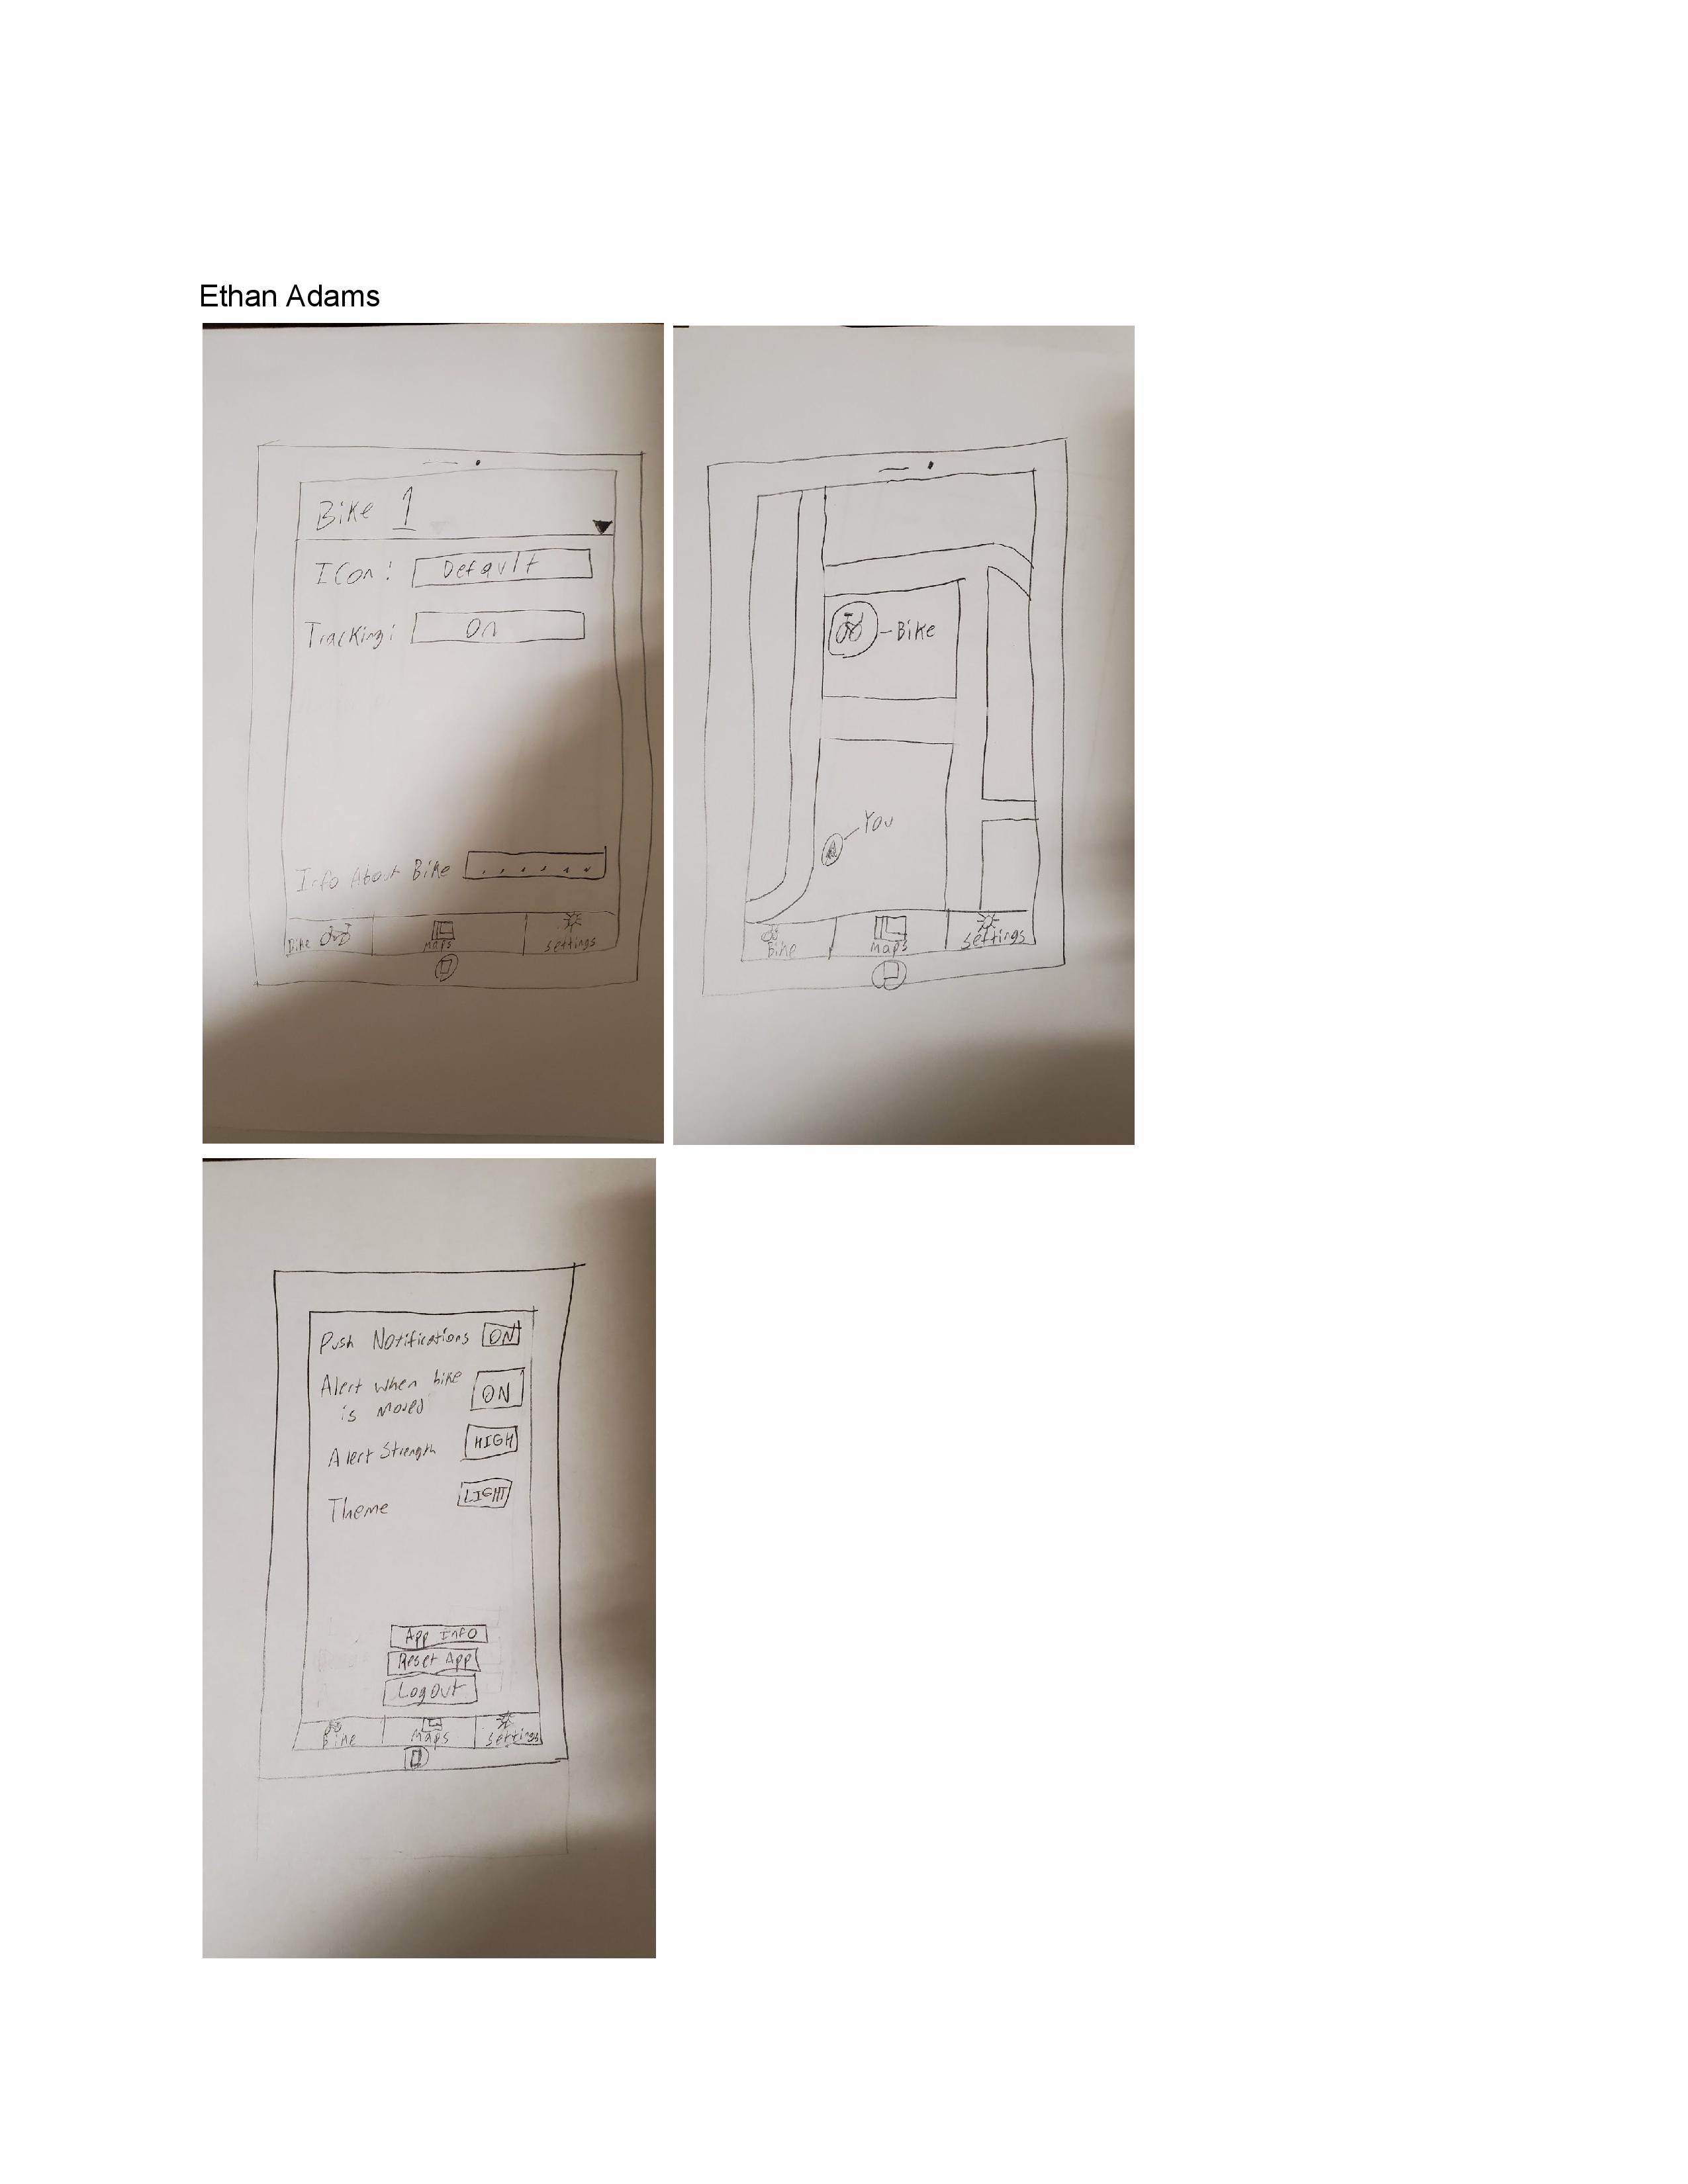 Ethan Adams
Bike 1
Icon: Default
Tracking: On
Info About Bike ......
Bike Maps Settings
Bike
You
Bike Maps Settings
Push Notifications ON
Alert when bike ON
is moved
Alert Strength HIGH
Theme LIGHT
App Info
Reset App
Logout
Bike Maps Settings